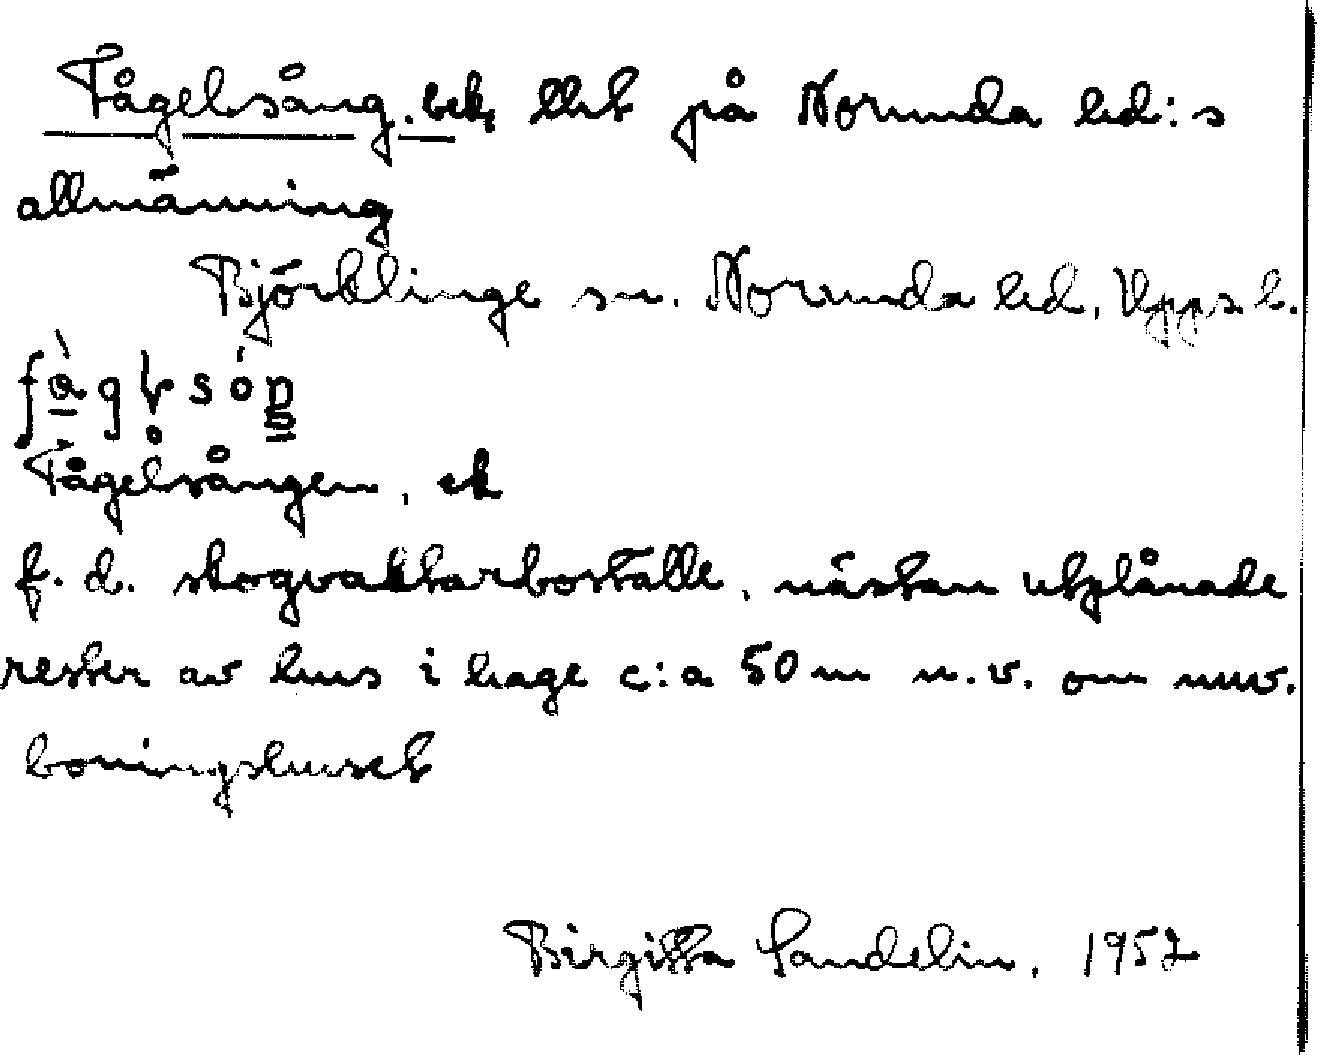 Fågelsång. bek, lht på Norunda hd:s
allmänning
Björklinge sn. Norunda hd, Upps. l.
fàgḷsóŋ
Fågelsången, ek
f. d. skogvaktarboställe, nästan utplånade
rester av hus i hage c:a 50 m n.v. om nuv.
boningshuset
Birgitta Sandelin, 1952